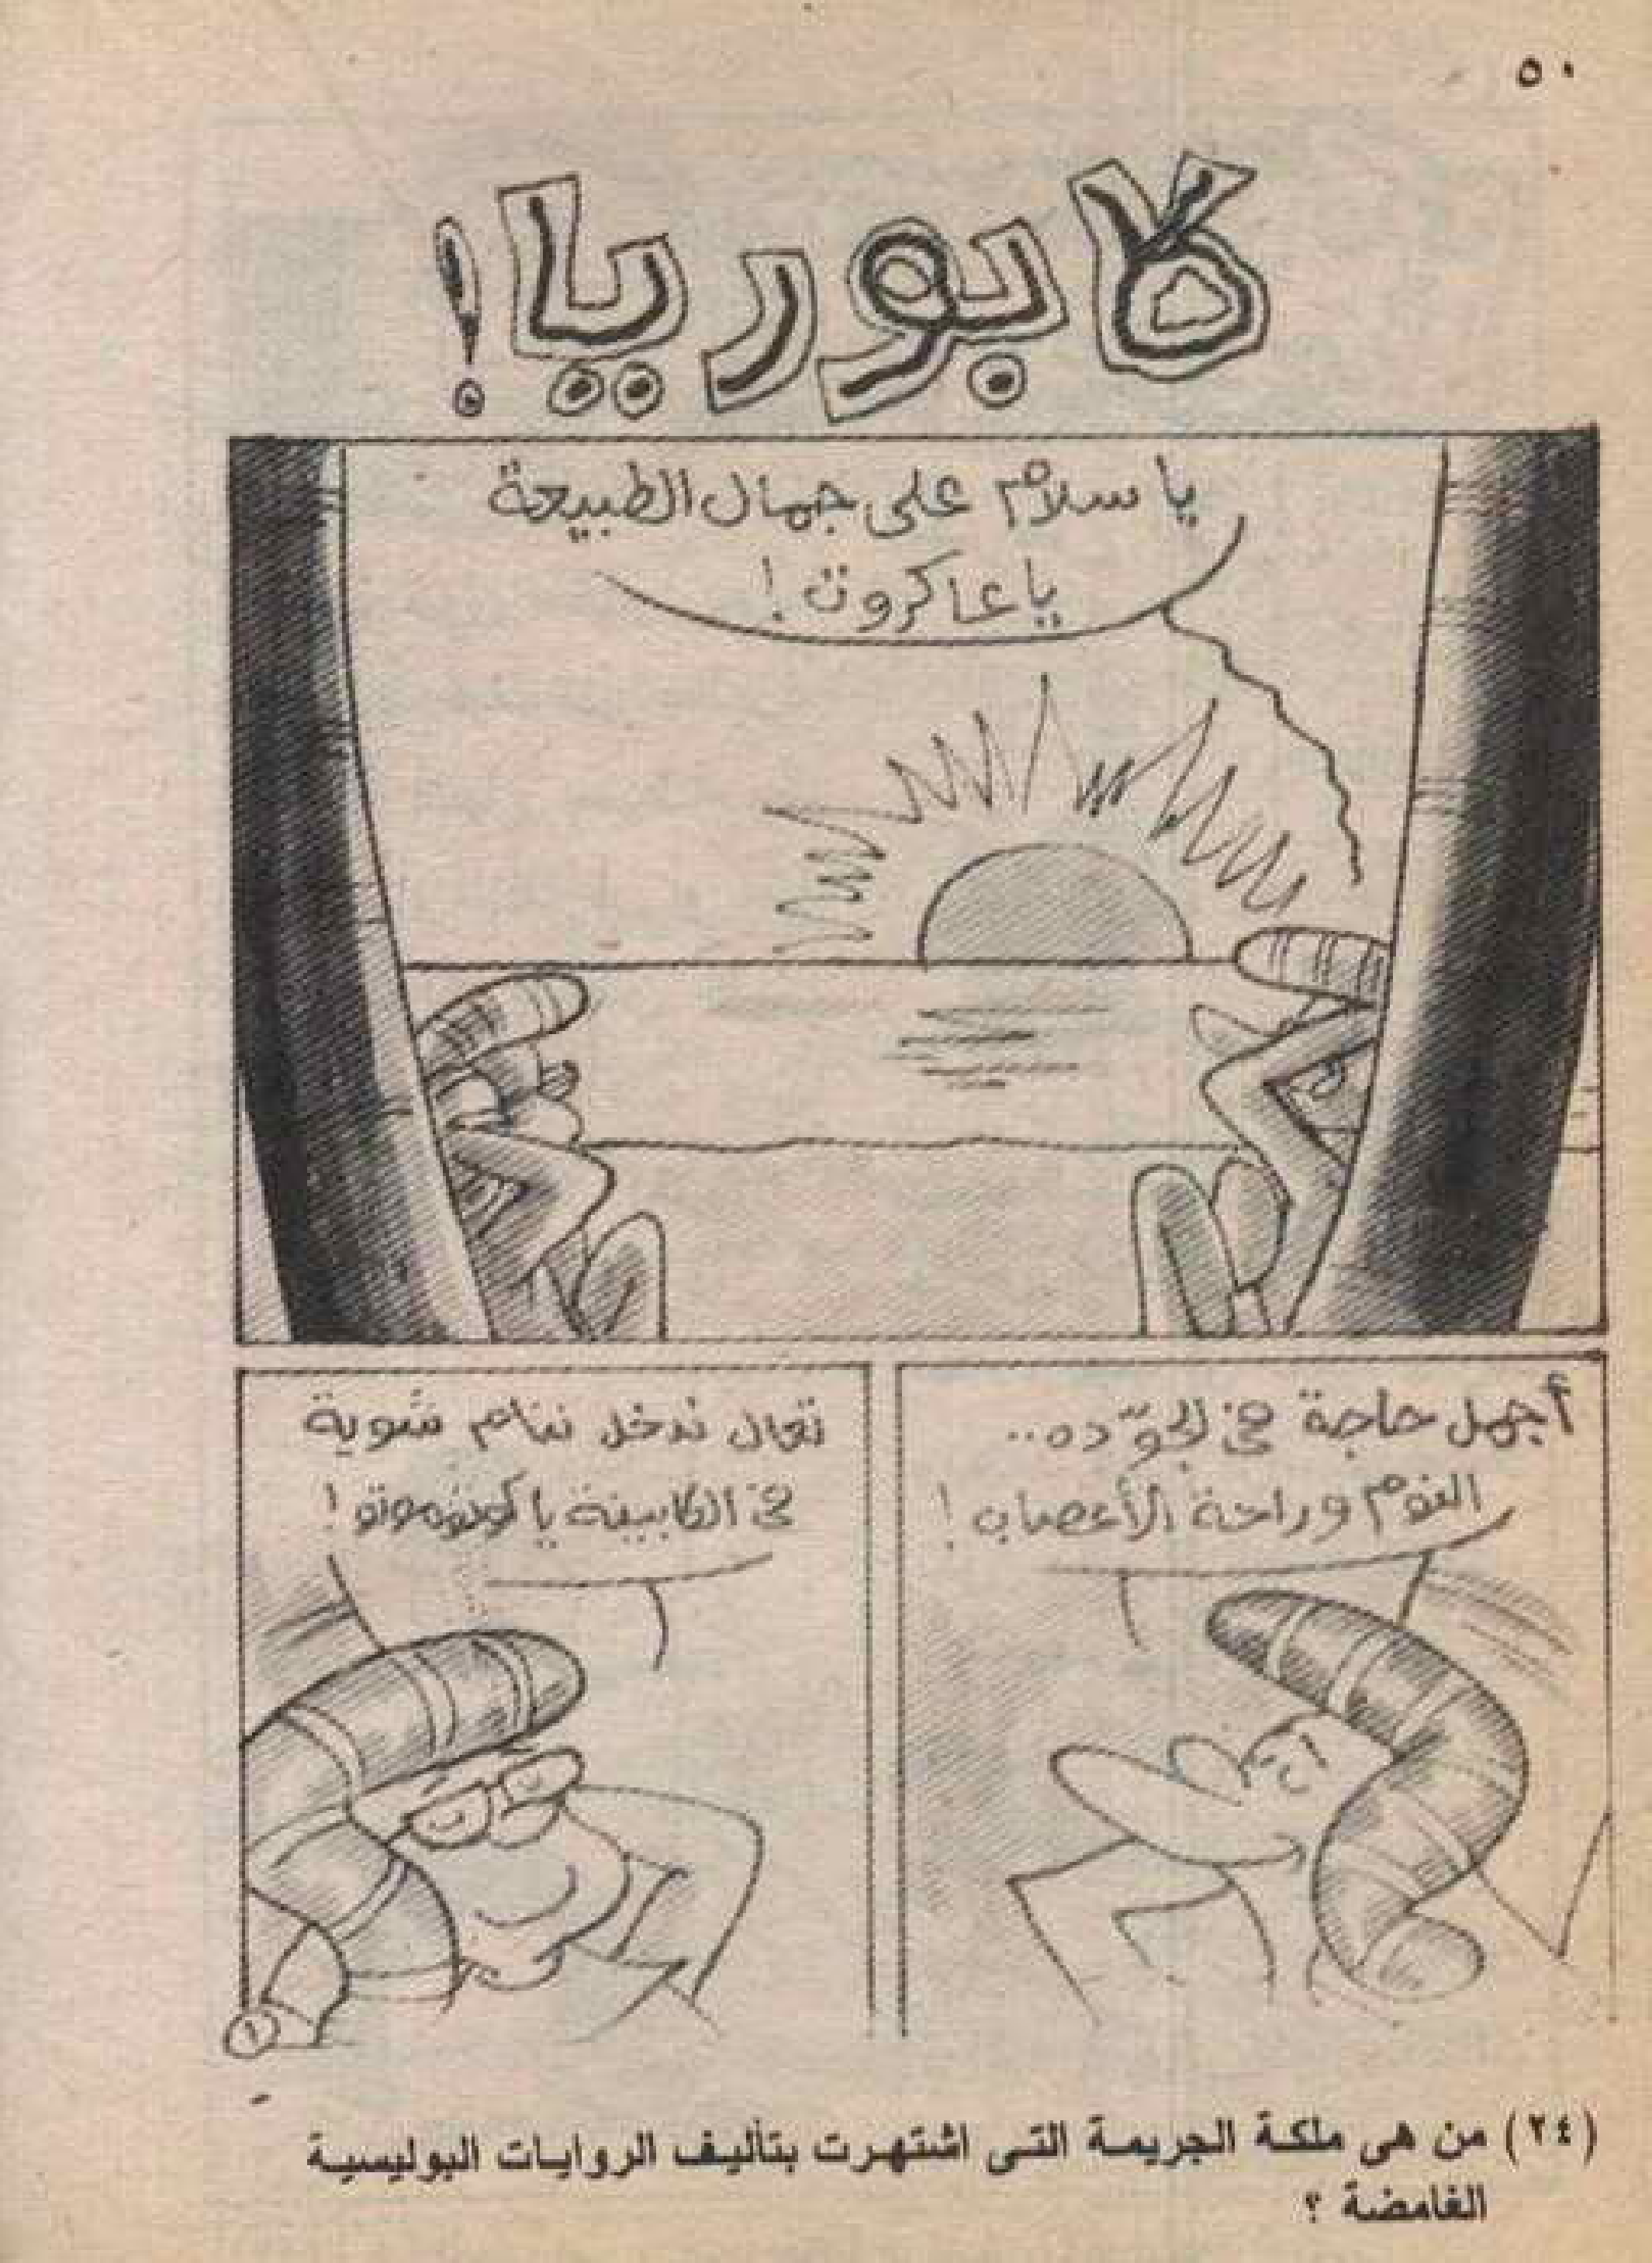 ٥٠
كابوريا!
يا سلام على جمال الطبيعة
يا عاكروت!
أجمل حاجة فى الجوّ ده..
النوم وراحة الأعصاب!
تعال ندخل ننام شوية
فى الكابينة يا كونوموتو!
١
(٢٤) من هى ملكة الجريمة التى اشتهرت بتأليف الروايات البوليسية
الغامضة ؟